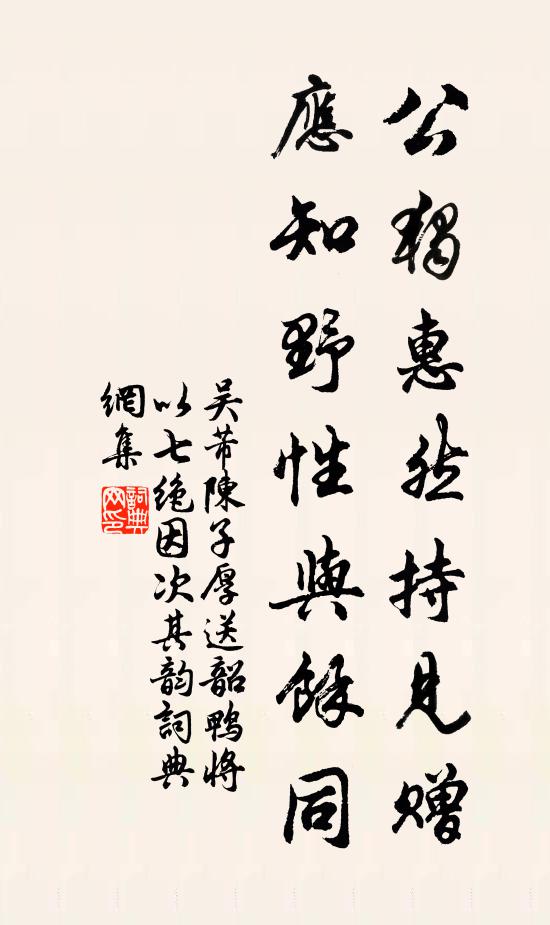 公獨惠然持見贈
應知野性與餘同
吴芾陳子厚送韶鴨將
以七絶因次其韵詞典
網集
詞典網印